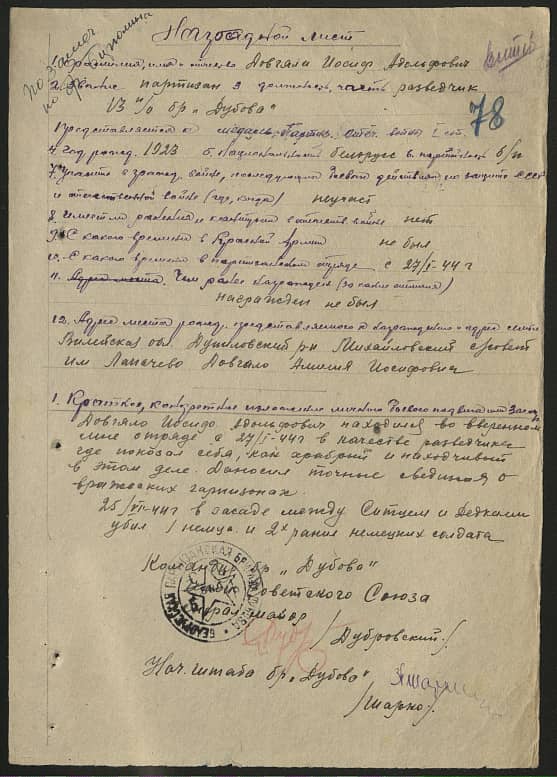 Наградной лист
По Замеч
78
1. Фамилия, имя и отчество Довгяло Иосиф Адольфович
2. Звание партизан 3 должность, часть разведчик
п/о бр „Дубова"
Представляется к медаль „Партиз. Отеч. войны" I ст.
4 год рожд. 1923 5. Национальность белорусс 6. партийность б/п
7. Участие в гражд. войне, последующих боевых действиях по защите СССР
и отечественной войне (где, когда) неучаст
8. Имеет ли ранения и контузии в отечеств. войне нет
9. С какого времени в Красной Армии не был
10. С какого времени в партизанском отряде с 27/I-44 г
11. Адрес места. Чем ранее награжден (за какие отличия)
награжден не был
12. Адрес места рожд. представляемого к награждению и адрес семьи
Вилейская обл. Дуниловский р-н Михайловский с/совет
им Довгяло Иосифовна
1. Краткое, конкретное изложение личного боевого подвига или заслуг
Довгяло Иосиф Адольфович находился во вверенном
мне отряде с 27/I-44 г в качестве разведчика
где показал себя, как храбрый и находчивый
в этом деле. Доносил точные сведения о
вражеских гарнизонах.
25/ -44 г в засаде между Ситцем и Дедками
убил 1 немца и 2х ранил немецких солдата
Команд. бр „Дубова"
Советского Союза
генерал майор
/Дубровский/.
Нач. штаба бр. „Дубова"
/Шарко/.